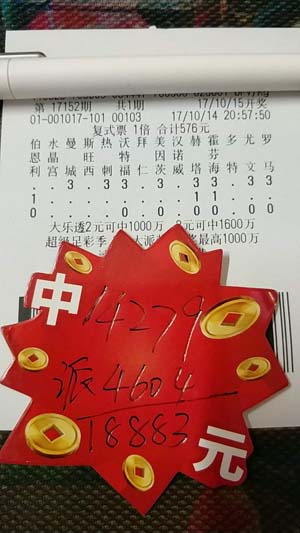 第 17152期 共1期 17/10/15开奖
01-001017-101 00103 17/10/14 20:57:50
复式票 1倍 合计576元
伯水曼斯热沃拜美汉赫霍多尤罗
恩晶 旺 特 因诺 芬
利宫城西刺福仁茨威塔海特文马
大乐透2元可中1000万 3元可中1600万
超级足彩季 大派 最高1000万
中
14279
派4604
18883
元